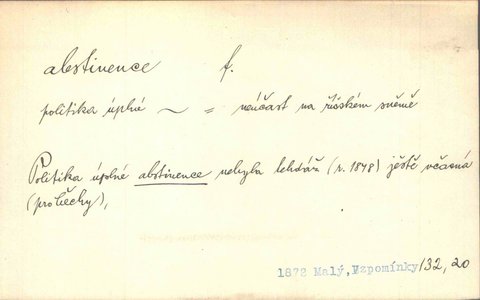 abstinence f.
politika úplné ~ = neúčast na říšském sněmě
Politika úplné abstinence nebyla tehdáž (r. 1848) ještě včasná
(pro Čechy),
1872 Malý, Vzpomínky/32, 20